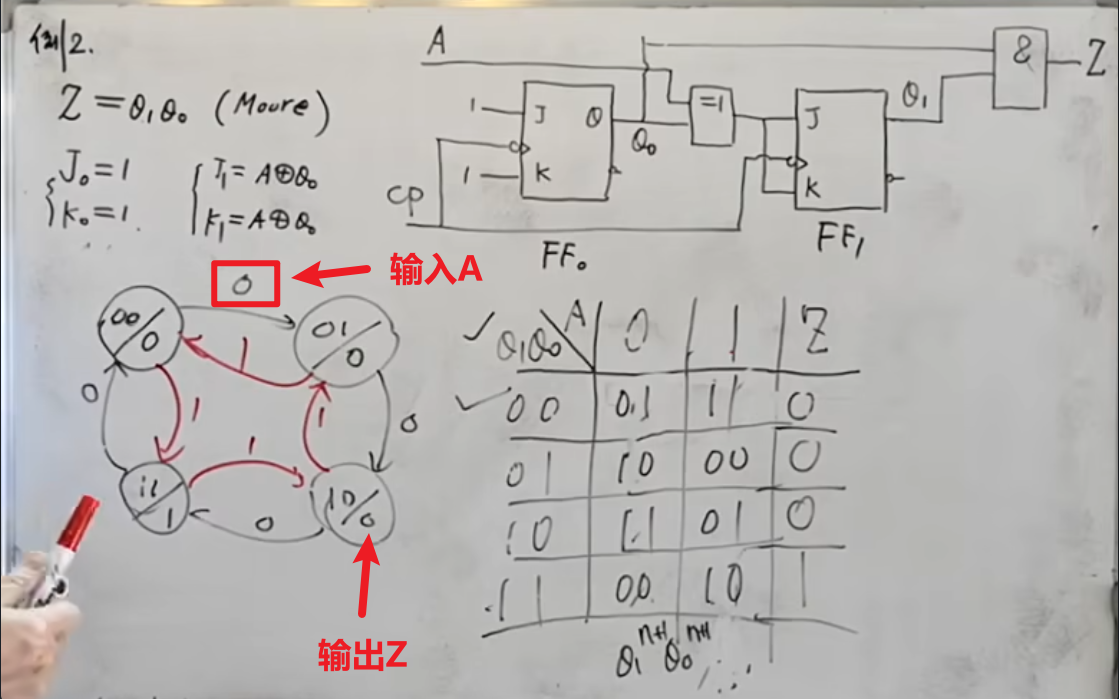 例2.
Z = Q₁Q₀ (Moure)
J₀ = 1
K₀ = 1
J₁ = A⊕Q₀
K₁ = A⊕Q₀
A
1 J Q
Q₀
1 K
CP
FF₀
=1
J
K
Q₁
FF₁
&
Z
0
输入A
00/0
01/0
1
0
1
1
1
0
11/1
10/0
0
输出Z
✓ Q₁Q₀ \ A 0 1 Z
✓ 00 01 11 0
01 10 00 0
10 11 01 0
11 00 10 1
Q₁ⁿ⁺¹ Q₀ⁿ⁺¹